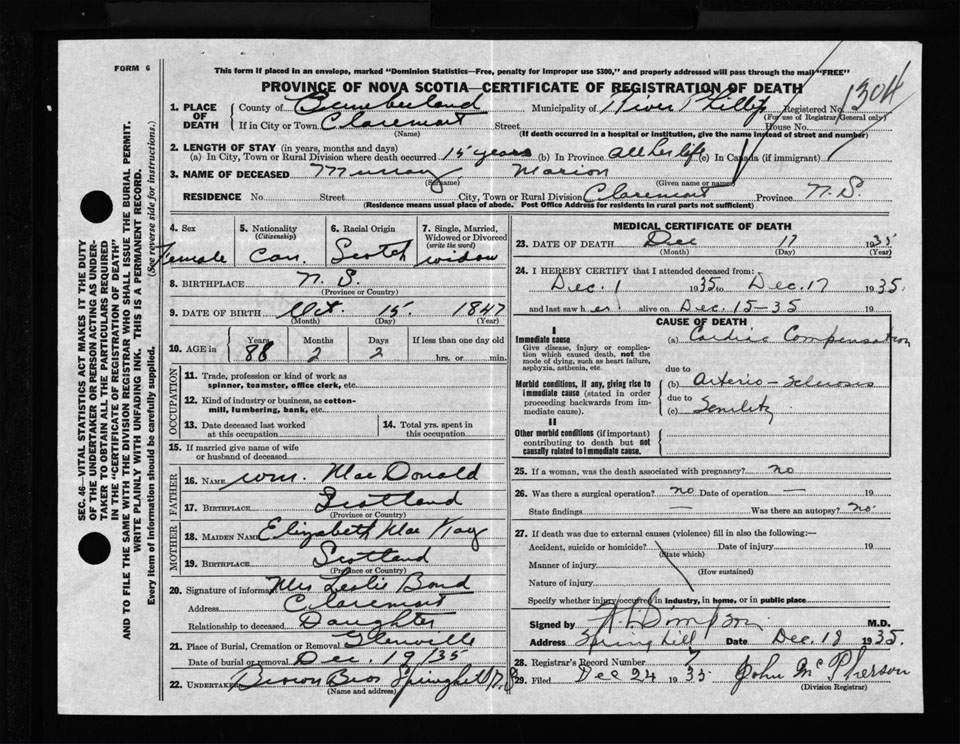 FORM 6
This form if placed in an envelope, marked "Dominion Statistics—Free, penalty for improper use $300," and properly addressed will pass through the mail "FREE"
PROVINCE OF NOVA SCOTIA—CERTIFICATE OF REGISTRATION OF DEATH
1304
1. PLACE OF DEATH
County of Cumberland Municipality of River Phillip Registered No.
(For use of Registrar General only)
If in City or Town Claremont Street House No.
(Name) (If death occurred in a hospital or institution, give the name instead of street and number)
2. LENGTH OF STAY (in years, months and days)
(a) In City, Town or Rural Division where death occurred 15 years (b) In Province all her life (c) In Canada (if immigrant)
3. NAME OF DECEASED Murray Marion
(Surname) (Given name or names)
RESIDENCE No. Street City, Town or Rural Division Claremont Province N.S.
(Residence means usual place of abode. Post Office Address for residents in rural parts not sufficient)
4. Sex Female
5. Nationality (Citizenship) Can.
6. Racial Origin Scotch
7. Single, Married, Widowed or Divorced (write the word) widow
8. BIRTHPLACE N. S.
(Province or Country)
9. DATE OF BIRTH Oct. 15 1847
(Month) (Day) (Year)
10. AGE in Years 88 Months 2 Days 2 If less than one day old
hrs. or min.
OCCUPATION
11. Trade, profession or kind of work as spinner, teamster, office clerk, etc.
12. Kind of industry or business, as cotton-mill, lumbering, bank, etc.
13. Date deceased last worked at this occupation
14. Total yrs. spent in this occupation
15. If married give name of wife or husband of deceased
FATHER
16. NAME Wm. MacDonald
17. BIRTHPLACE Scotland
(Province or Country)
MOTHER
18. MAIDEN NAME Elizabeth MacKay
19. BIRTHPLACE Scotland
(Province or Country)
20. Signature of informant Mrs Leslie Bond
Address Claremont
Relationship to deceased Daughter
21. Place of Burial, Cremation or Removal Glenville
Date of burial or removal Dec. 19/35
22. Undertaker Brown Bros Springhill N.S
(Name and address)
MEDICAL CERTIFICATE OF DEATH
23. DATE OF DEATH Dec 17 1935
(Month) (Day) (Year)
24. I HEREBY CERTIFY that I attended deceased from:
Dec. 1 1935 to Dec. 17 1935.
and last saw her alive on Dec. 15-35
CAUSE OF DEATH
I
Immediate cause
Give disease, injury or complication which caused death, not the mode of dying, such as heart failure, asphyxia, asthenia, etc.
(a) Cardiac Compensation
due to
Morbid conditions, if any, giving rise to immediate cause (stated in order proceeding backwards from immediate cause).
(b) Arterio-sclerosis
due to
(c) Senility
II
Other morbid conditions (if important) contributing to death but not causally related to immediate cause.
25. If a woman, was the death associated with pregnancy? no
26. Was there a surgical operation? no Date of operation — 19
State findings — Was there an autopsy? no
27. If death was due to external causes (violence) fill in also the following:—
Accident, suicide or homicide? Date of injury 19
(State which)
Manner of injury
(How sustained)
Nature of injury
Specify whether injury occurred in industry, in home, or in public place
Signed by M.D.
Address Spring hill Date Dec. 18 1935.
28. Registrar's Record Number 7
29. Filed Dec 24 1935 John McPherson
(Division Registrar)
SEC. 46—VITAL STATISTICS ACT MAKES IT THE DUTY
OF THE UNDERTAKER OR PERSON ACTING AS UNDER-
TAKER TO OBTAIN ALL THE PARTICULARS REQUIRED
IN THE "CERTIFICATE OF REGISTRATION OF DEATH"
AND TO FILE THE SAME WITH THE DIVISION REGISTRAR WHO SHALL ISSUE THE BURIAL PERMIT.
WRITE PLAINLY WITH UNFADING INK. THIS IS A PERMANENT RECORD.
Every item of information should be carefully supplied. (See reverse side for instructions.)